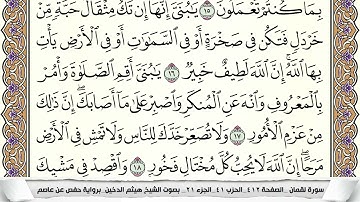 بِمَا كُنتُمْ تَعْمَلُونَ ١٥ يَٰبُنَىَّ إِنَّهَآ إِن تَكُ مِثْقَالَ حَبَّةٍ مِّنْ
خَرْدَلٍ فَتَكُن فِى صَخْرَةٍ أَوْ فِى ٱلسَّمَٰوَٰتِ أَوْ فِى ٱلْأَرْضِ يَأْتِ
بِهَا ٱللَّهُ إِنَّ ٱللَّهَ لَطِيفٌ خَبِيرٌ ١٦ يَٰبُنَىَّ أَقِمِ ٱلصَّلَوٰةَ وَأْمُرْ
بِٱلْمَعْرُوفِ وَٱنْهَ عَنِ ٱلْمُنكَرِ وَٱصْبِرْ عَلَىٰ مَآ أَصَابَكَ إِنَّ ذَٰلِكَ
مِنْ عَزْمِ ٱلْأُمُورِ ١٧ وَلَا تُصَعِّرْ خَدَّكَ لِلنَّاسِ وَلَا تَمْشِ فِى ٱلْأَرْضِ
مَرَحًا إِنَّ ٱللَّهَ لَا يُحِبُّ كُلَّ مُخْتَالٍ فَخُورٍ ١٨ وَٱقْصِدْ فِى مَشْيِكَ
سورة لقمان _ الصفحة ٤١٢ _ الحزب ٤١ _ الجزء ٢١ _ بصوت الشيخ هيثم الدخين _ برواية حفص عن عاصم